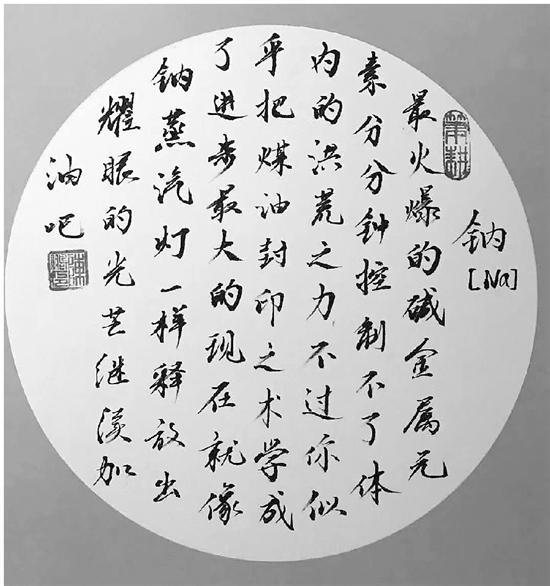 笔耕
钠
[Na]
最火爆的碱金属元
素分分钟控制不了体
内的洪荒之力不过你似
乎把煤油封印之术学成
了进步最大的现在就像
钠蒸汽灯一样释放出
耀眼的光芒继续加
油吧